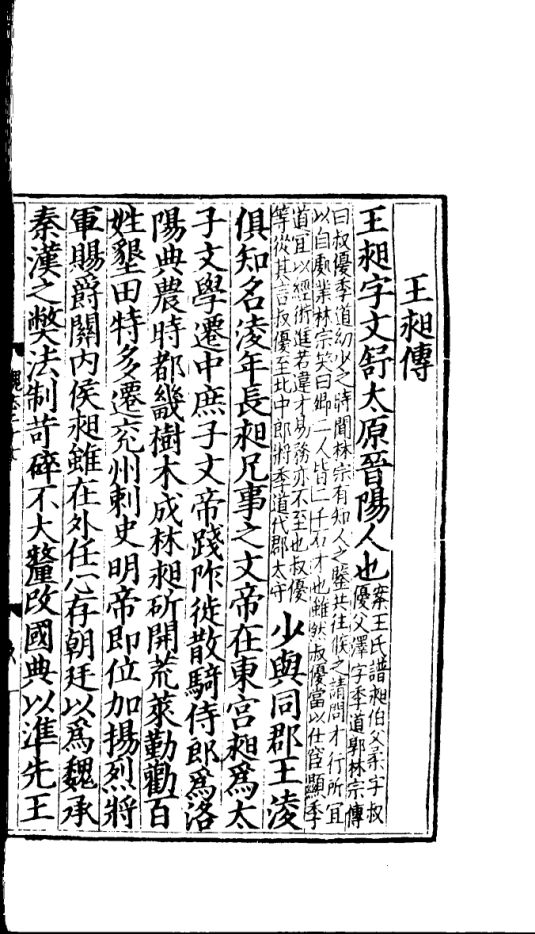 王昶傳
王昶字文舒太原晉陽人也
案王氏譜昶伯父柔字叔
優父澤字季道郭林宗傳
曰叔優季道幼少之時聞林宗有知人之鑒共往候之請問才行所宜
以自處業林宗笑曰卿二人皆二千石才也雖然叔優當以仕宦顯季
道宜以經術進若違才易務亦不至也叔優
等從其言叔優至北中郎將季道代郡太守
少與同郡王淩
俱知名淩年長昶兄事之文帝在東宮昶爲太
子文學遷中庶子文帝踐阼徙散騎侍郎爲洛
陽典農時都畿樹木成林昶斫開荒萊勤勸百
姓墾田特多遷兖州刺史明帝即位加揚烈將
軍賜爵關內侯昶雖在外任心存朝廷以爲魏承
秦漢之弊法制苛碎不大釐改國典以準先王